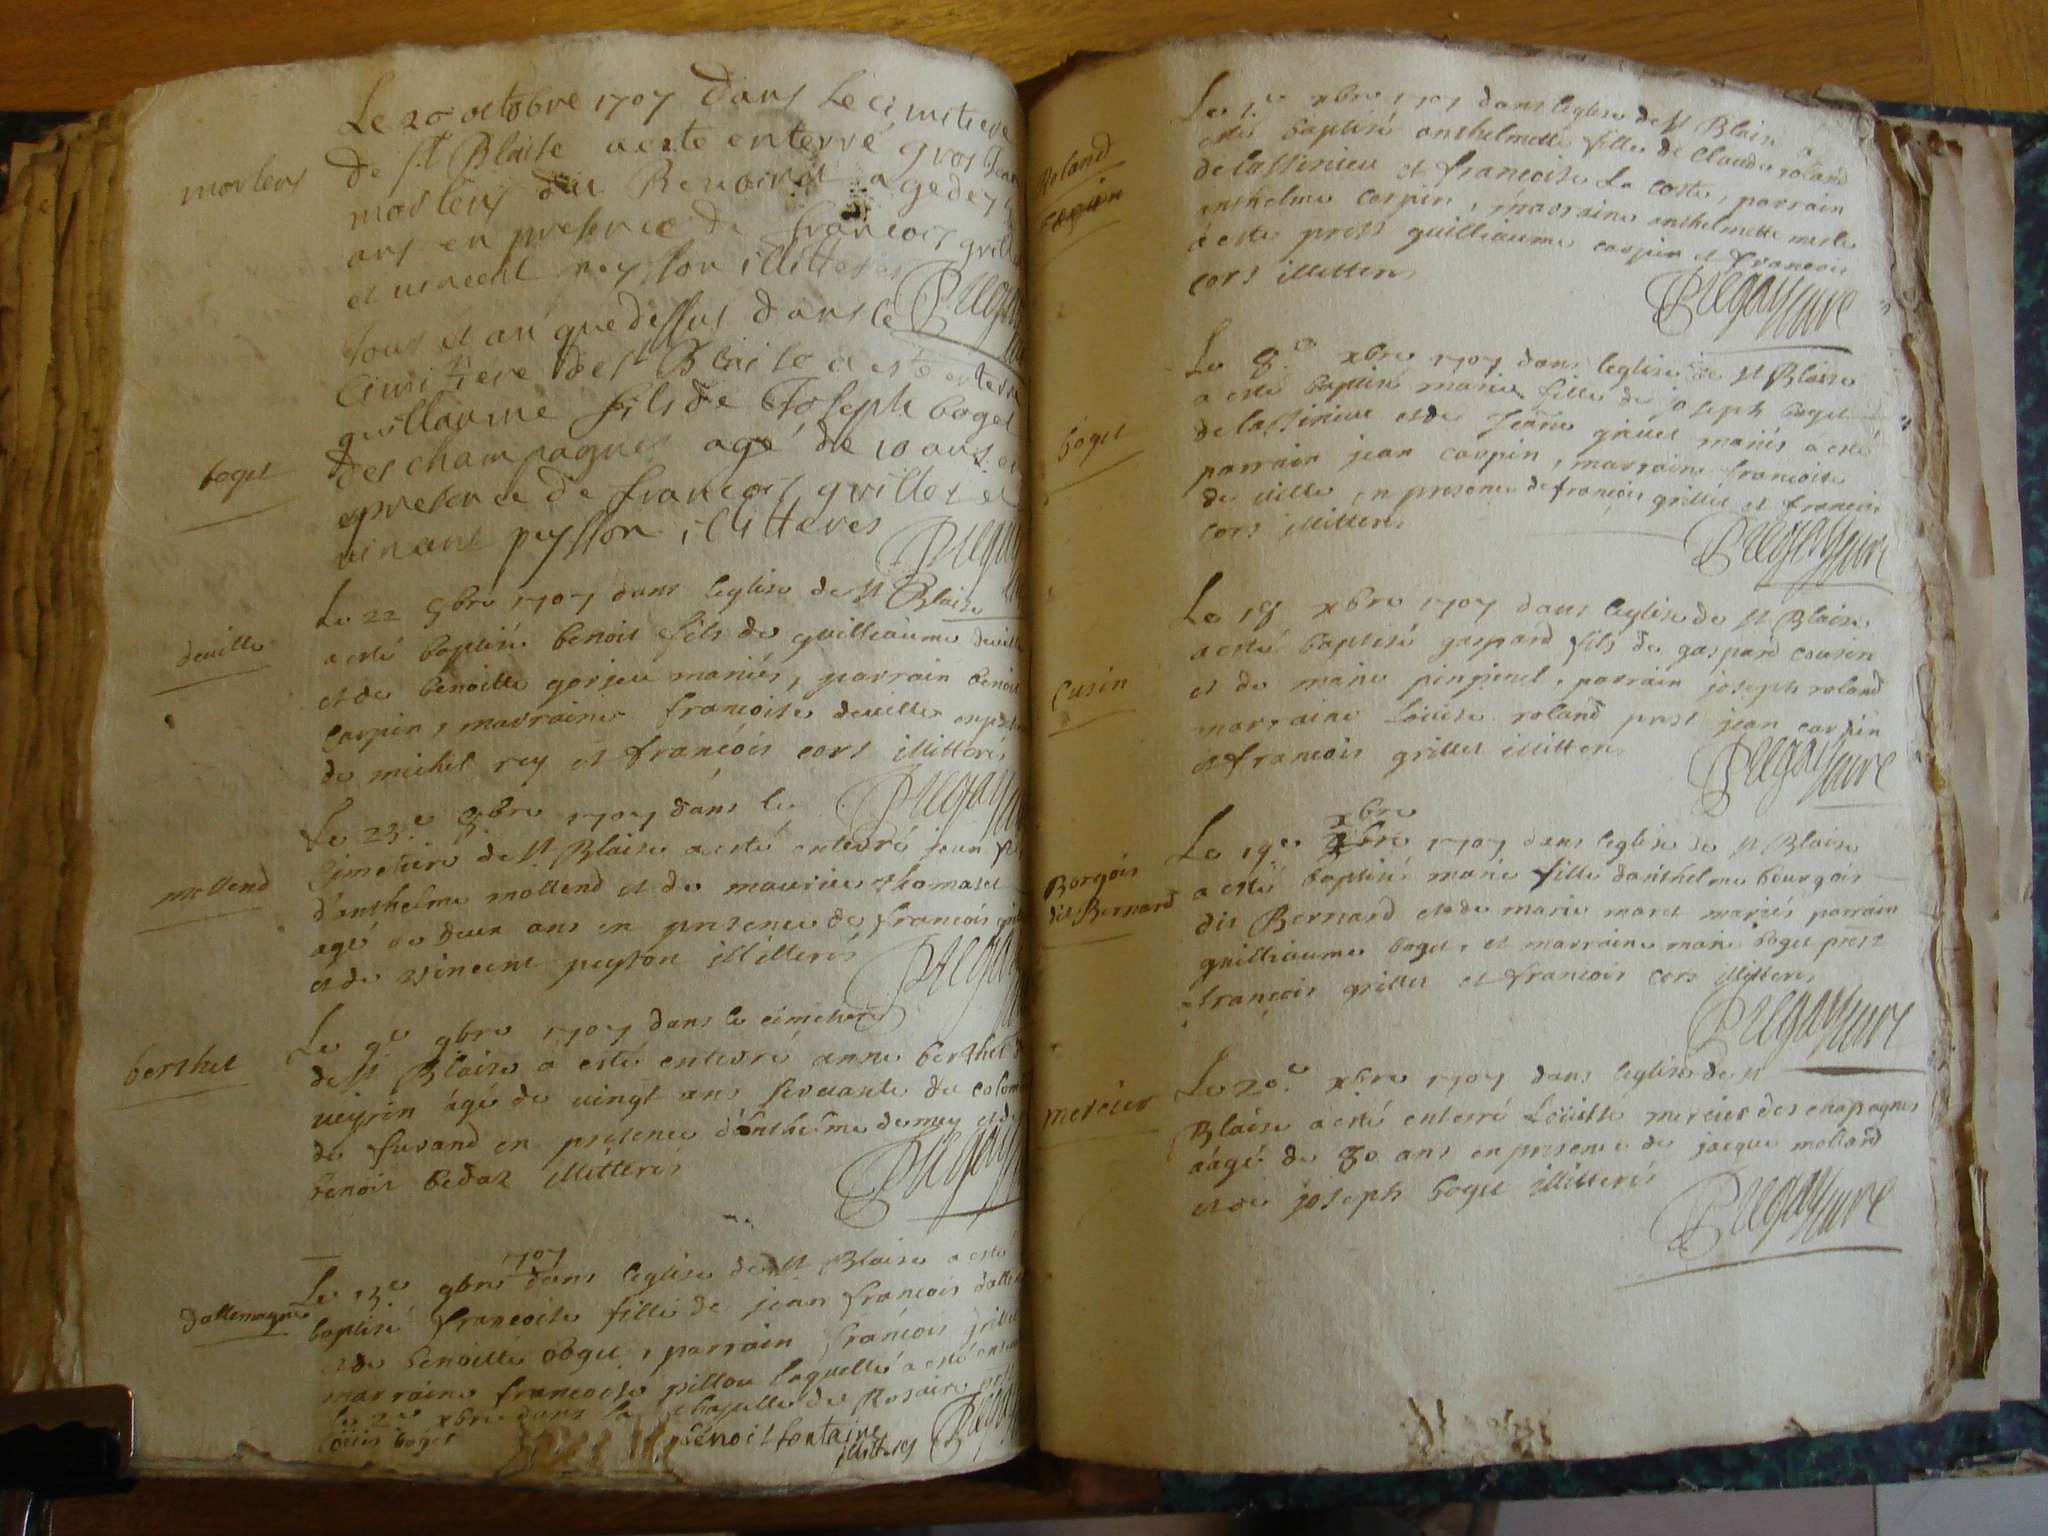 Le 20 octobre 1707 dans le cimitiere
morlens
de st Blaise a este enterré gros Jean
morlens du Renoird agé de
ans en presence de francois grillet
et vincent peysson illitteres
Pregay
Jour et an que dessus dans le
cimitiere de st Blaise a este enterré
guillaume fils de Joseph boget
boget
des champagnes agé de 10 ans en
presence de francois grillet et
vincent peysson illitteres
Pregay
Le 22 9bre 1707 dans leglise de st Blaise
deville
a esté baptisé benoit fils de guilliaume deville
et de benoitte gorjeu mariés, parrain benoit
carpin, marraine francoise deville
de michel rey et francois cors illitterés
Pregay
Le 23e 9bre 1707 dans le
cimetiere de st Blaise a esté enterré jean
mollend
d'anthelme mollend et de maurise thomaset
agé de deux ans en presence de francois
et de vincent peyson illitterés
Pregay
Le 9e 9bre 1707 dans le cimetiere
berthet
de st Blaise a esté enterré anne berthet
veyrin agé de vingt ans servante de
de furand en presence d'anthelme demey
benoit bedat illitterés
Pregay
Le 13e 9bre 1707 dans leglise de st Blaise a esté
dallemagne
baptisé francoise fille de jean francois
et de benoitte boget, parrain francois grillet
marraine francoise pillou laquelle a esté
le 2e xbre dans la chapelle du Rosaire
louis boget benoit fontaine
illitteres Pregay
Le 1er xbre 1707 dans leglise de st Blaise a
Roland
esté baptisé anthelmette fille de Claude roland
carpin
de lassinieu et francoise la coste, parrain
anthelme carpin, marraine anthelmette merle
a esté prest guilliaume carpin et francois
cors illitteres
Pregay cure
Le 8e xbre 1707 dans leglise de st Blaise
a esté baptisé marie fille de joseph boget
boget
de lassinieu et de Jeanne grillet mariés a esté
parrain jean carpin, marraine francoise
de ville en presence de francois grillet et francois
cors illitteres
Pregay cure
Le 18 xbre 1707 dans leglise de st Blaise
a esté baptisé gaspard fils de gaspard cousin
cusin
et de marie pinpinel, parrain joseph roland
marraine Louise roland prest jean carpin
et francois grillet illitteres
Pregay cure
xbre
Le 19e 9bre 1707 dans leglise de st Blaise
Borgois
a esté baptisé marie fille danthelme bourgois
dit Bernard
dit Bernard et de marie maret mariés parrain
guilliaume boget, et marraine marie boget prest
francois grillet et francois cors illitteres
Pregay cure
Le 20e xbre 1707 dans leglise de st
mercier
Blaise a esté enterré Louise mercier des chapagnes
aagé de 80 ans en presence de jacque mollard
et de joseph boget illitterés
Pregay cure